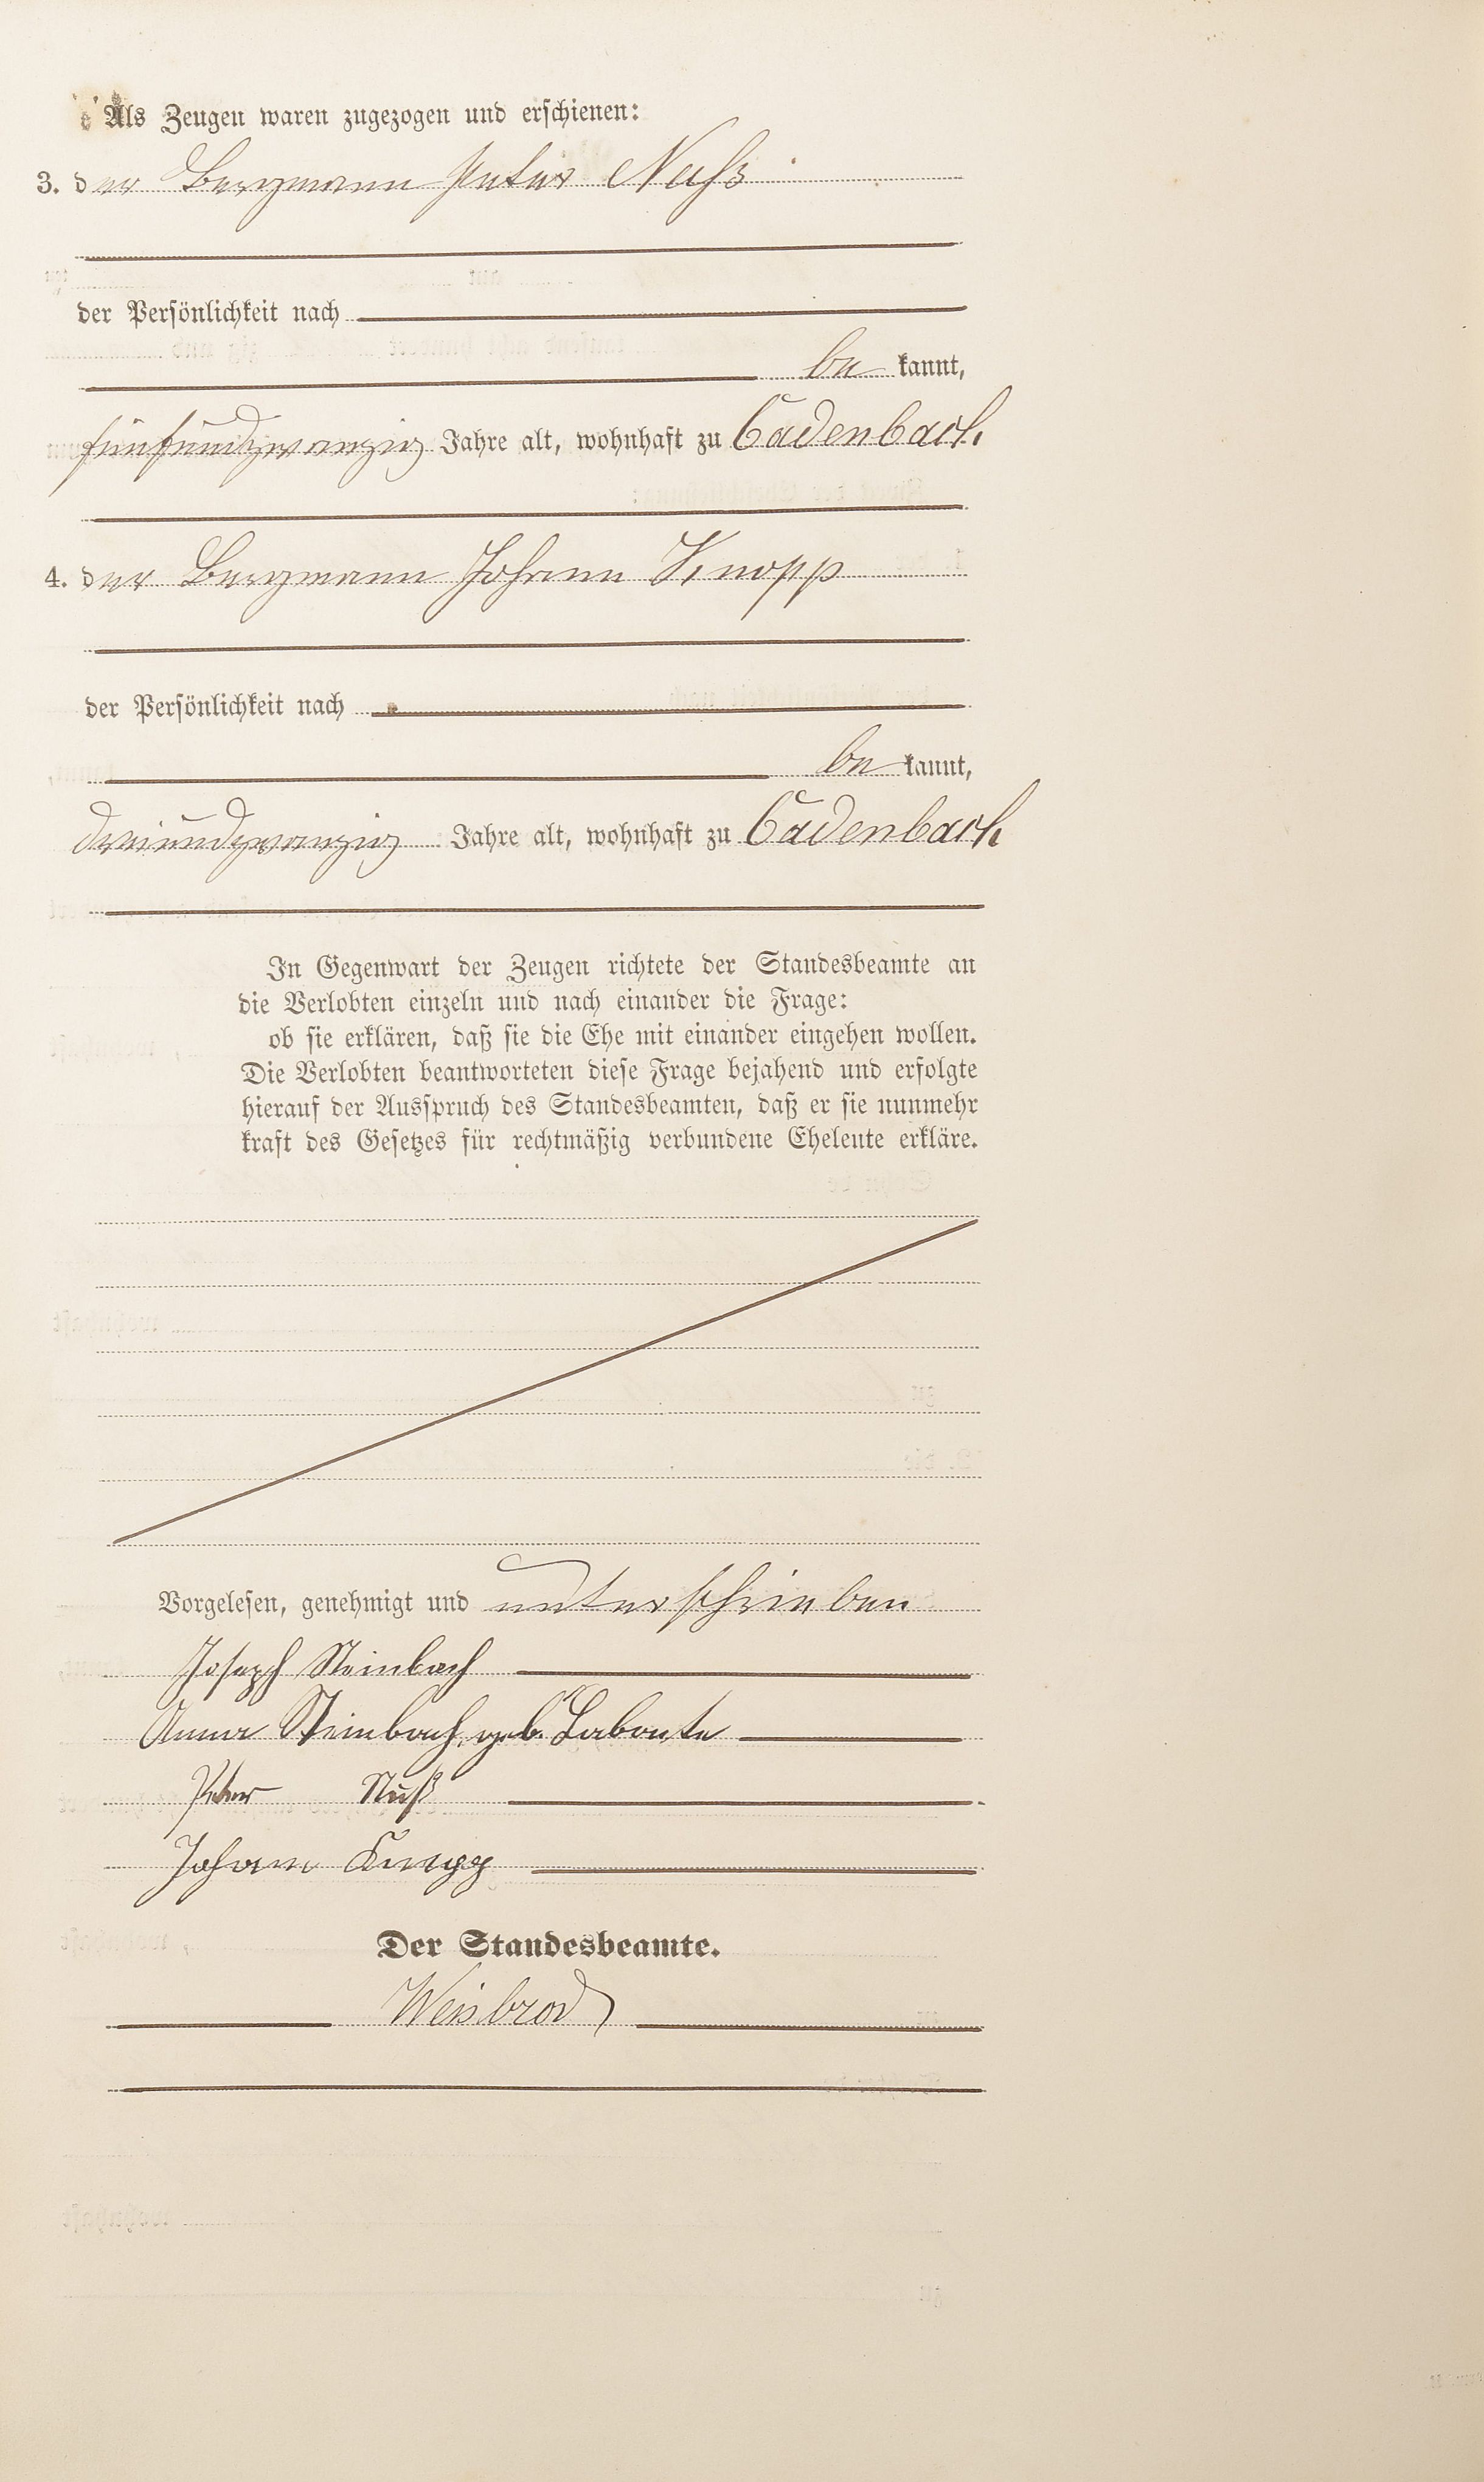 Als Zeugen waren zugezogen und erschienen:
3. der Bergmann Peter Nuß
der Persönlichkeit nach
be kannt,
fünfundzwanzig Jahre alt, wohnhaft zu Cadenbach
4. der Bergmann Johann Knopp
der Persönlichkeit nach
be kannt,
dreiundzwanzig Jahre alt, wohnhaft zu Cadenbach
In Gegenwart der Zeugen richtete der Standesbeamte an
die Verlobten einzeln und nach einander die Frage:
ob sie erklären, daß sie die Ehe mit einander eingehen wollen.
Die Verlobten beantworteten diese Frage bejahend und erfolgte
hierauf der Ausspruch des Standesbeamten, daß er sie nunmehr
kraft des Gesetzes für rechtmäßig verbundene Eheleute erkläre.
Vorgelesen, genehmigt und unterschrieben
Joseph Steinbach
Anna Steinbach geb. Laboute
Peter Nuß
Johann Knopp
Der Standesbeamte.
Weisbrod